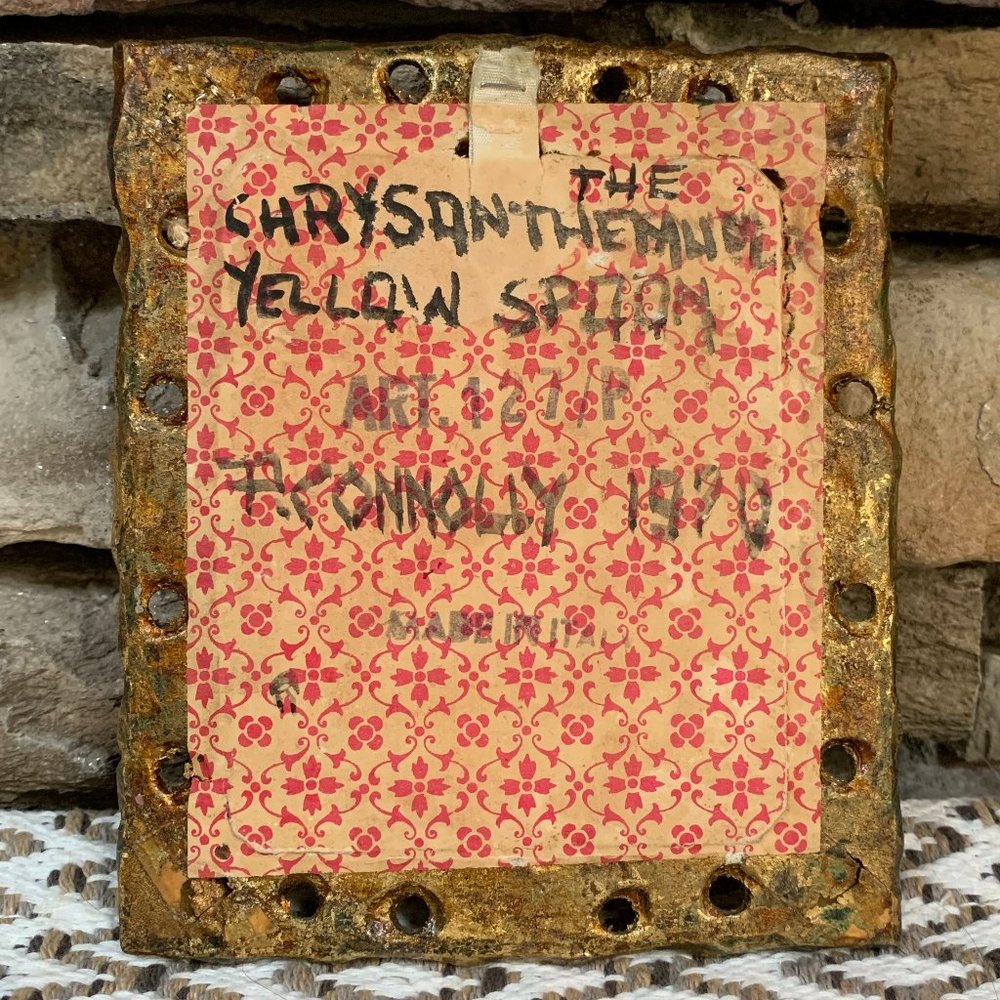 THE
CHRYSANTHEMUM
YELLOW SPOON
ART. 127/P
T. CONNOLLY 1970
MADE IN ITAL